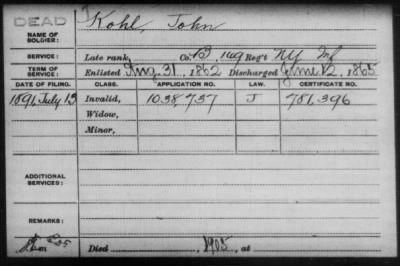 DEAD
NAME OF SOLDIER: Kohl, John
SERVICE: Late rank, Co. B, 149 Reg't NY Inf
TERM OF SERVICE: Enlisted Aug. 31, 1862 Discharged June 12, 1865
DATE OF FILING. CLASS. APPLICATION NO. LAW. CERTIFICATE NO.
1891 July 13 Invalid, 1038,737 J 781,396
Widow,
Minor,
ADDITIONAL SERVICES:
REMARKS:
Died 1905, at